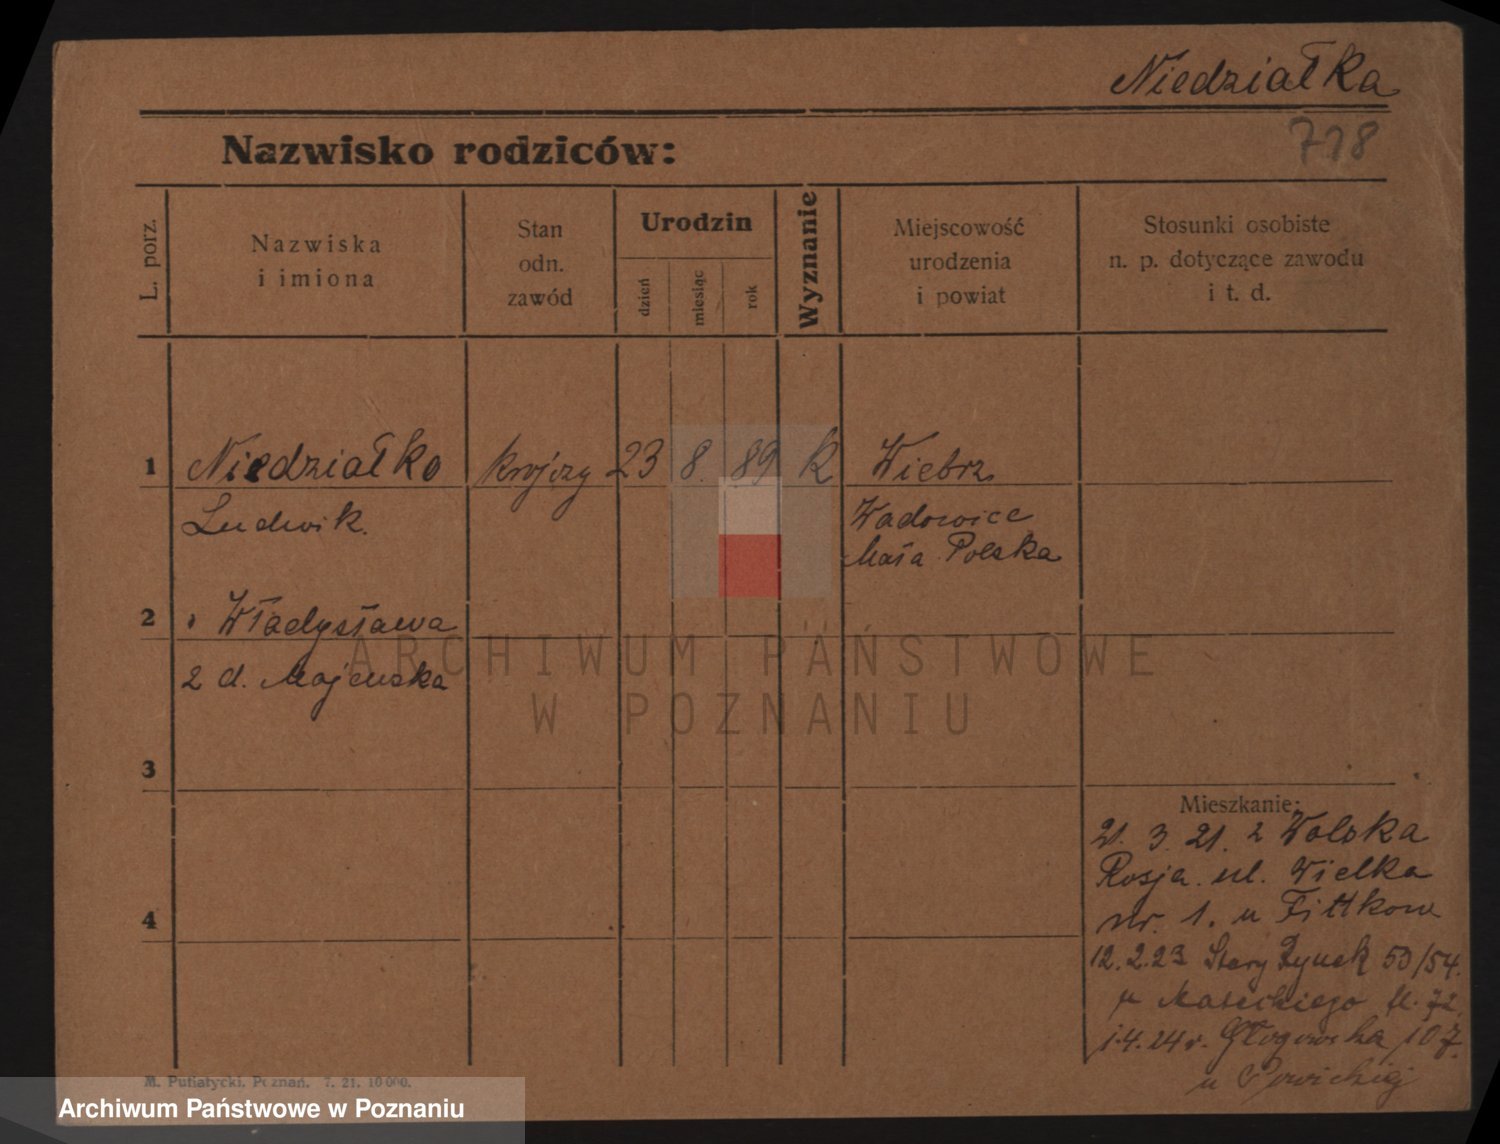 Niedziałka
718
Nazwisko rodziców:
L. porz.
Nazwiska
i imiona
Stan
odn.
zawód
Urodzin
dzień
miesiąc
rok
Wyznanie
Miejscowość
urodzenia
i powiat
Stosunki osobiste
n. p. dotyczące zawodu
i t. d.
1 Niedziałko krojczy 23 8. 89 k Wiebrz
Ludwik. Wadowice
Mała Polska
2 Władysława
2 d. Majewska
ARCHIWUM PAŃSTWOWE
W POZNANIU
3
Mieszkanie:
21. 3. 21. z Wolska
Rosja. ul. Wielka
nr. 1. u Fittkow
4
12. 2. 23 Stary Rynek 53/54.
1.4.24 r. Głogowska 107.
u
M. Putiatycki, Poznań. 7. 21. 10 000.
Archiwum Państwowe w Poznaniu